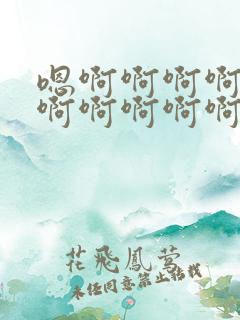 嗯啊啊啊啊
啊啊啊啊啊
花飛鳳萱
未经同意禁止转载